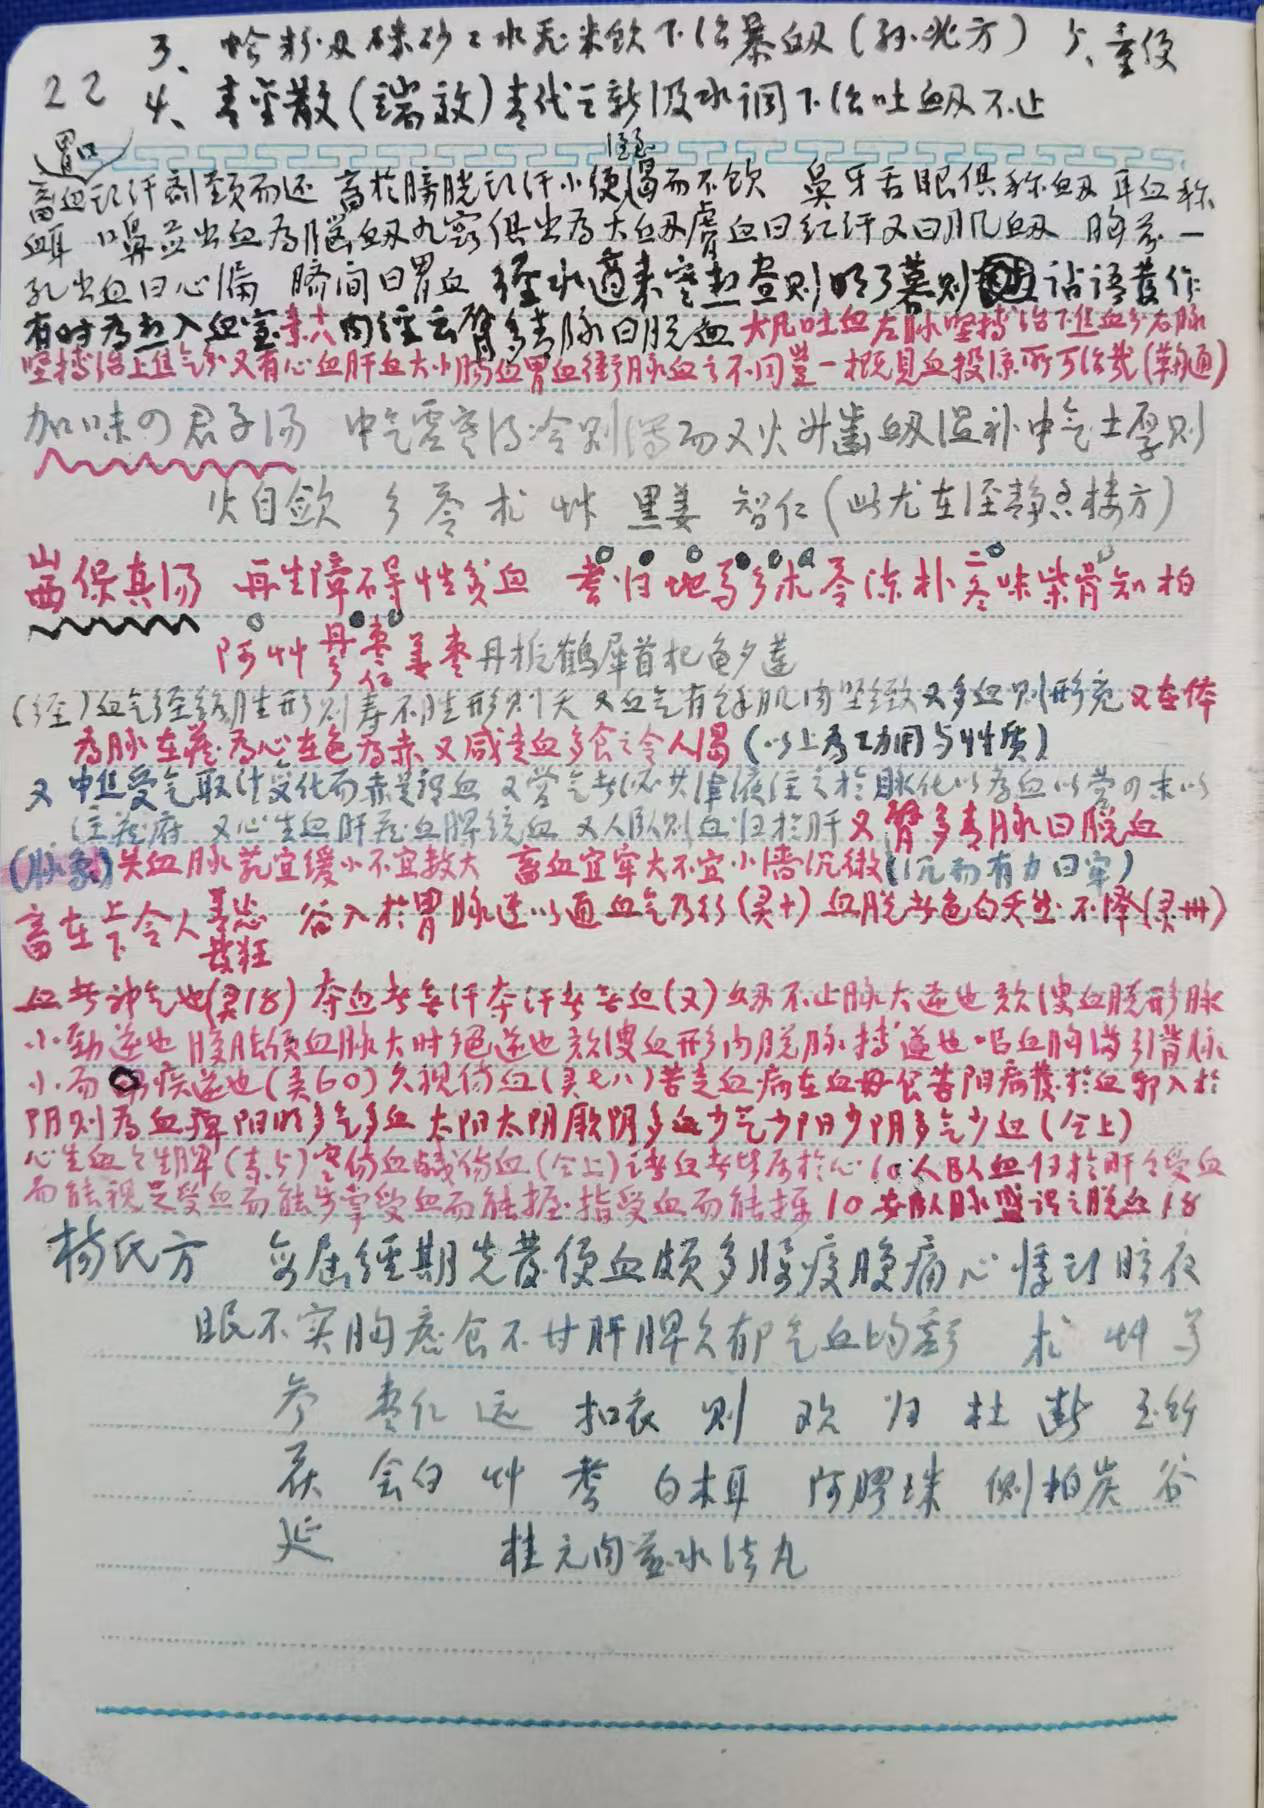 3、蛤粉 硃砂 水 米飲下治暴衄（孙兆方） 5、童便
22 4、青金散（端效）青代二 新汲水调下治吐血衄不止
胃口
蓄血 汗剂颈而还 蓄於膀胱 汗小便 渴而不饮 鼻牙舌眼俱称衄 耳血称
衈 口鼻並出血為脑衄 九窍俱出為大衄 膚血曰红汗又曰肌衄 胸前一
孔出血曰心漏 臍间曰胃血 經水適来寒热昼则明了暮则 谵语發作
有时為热入血室 内經云臂多青脉曰脱血 大凡吐血左脉坚搏治下焦血分右脉
坚搏治上焦气分 又有心血肝血大小肠血胃血衝脉血之不同豈一概見血投凉所可治哉
加味の君子汤 中气虚寒得冷则泻而又火升齒衄温补中气土厚则
火自歛 参苓术艸 黑姜 智仁（此尤在涇静香楼方）
保真汤 再生障碍性贫血 耆归地芍参术苓陈朴冬味柴骨知柏
阿艸丹参枣仁姜枣丹栀鹤犀首杞龟 莲
（经）血气经络胜形则寿不胜形则夭 又血气有餘肌肉坚緻 又多血则形充 又在体
為脉在藏為心在色為赤 又咸走血多食之令人渴（以上為功用与性质）
又中焦受气取汁变化而赤是谓血 又营气者泌其津液注之於脉化以為血以营の末以
注藏府 又心生血肝藏血脾统血 又人臥则血归於肝 又臂多青脉曰脱血
（脉象）失血脉芤宜缓小不宜数大 蓄血宜牢大不宜小濇沉微（沉而有力曰牢）
蓄在上下令人善忘發狂 谷入於胃脉道以通血气乃行（灵十）血脱者色白夭然不泽（灵卅）
血者神气也（灵18）夺血者無汗夺汗者無血（又）衄不止脉大逆也 欬溲血脱形脉
小劲逆也 腹胀便血脉大时绝逆也 欬溲血形肉脱脉搏逆也 呕血胸满引背脉
小而 疾逆也（灵60）久视伤血（灵七八）苦走血病在血毋食苦 阳病發於血邪入於
阴则為血痺 阳明多气多血 太阳太阴厥阴多血少气 少阳少阴多气少血（仝上）
心生血血生脾（素5）寒伤血鹹伤血（仝上）诸血者皆属於心10 人臥血归於肝 受血
而能视足受血而能步掌受血而能握指受血而能摄10 安臥脉盛谓之脱血18
杨氏方 每届經期先發便血颇多 腰痠腹痛心悸 胘夜
眠不实胸痞食不甘肝脾久郁气血均亏 术 艸 芍
参 枣仁 远 扣衣 则 欢 归 杜 断 玉竹
茯 会白 艸 耆 白木耳 阿膠珠 侧柏炭 谷
延 桂元肉煎水法丸